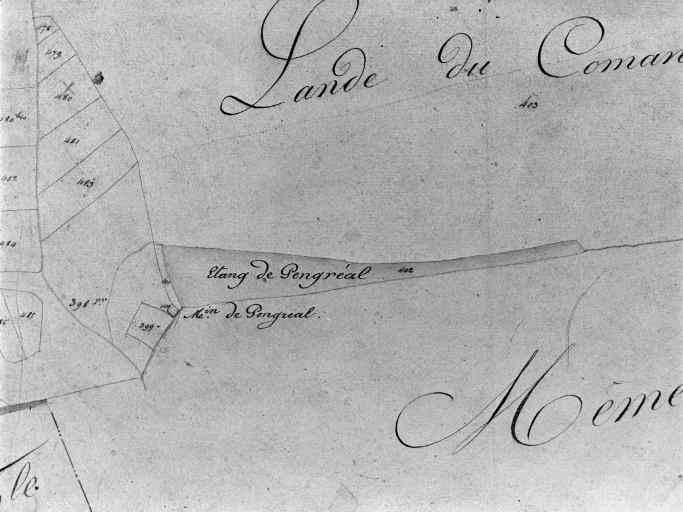 Lande du Coman
403
478
479
480
480 bis
481
482
483
484
485
Etang de Pengréal 402
Min de Pengréal.
398 pr
399
Même
le.